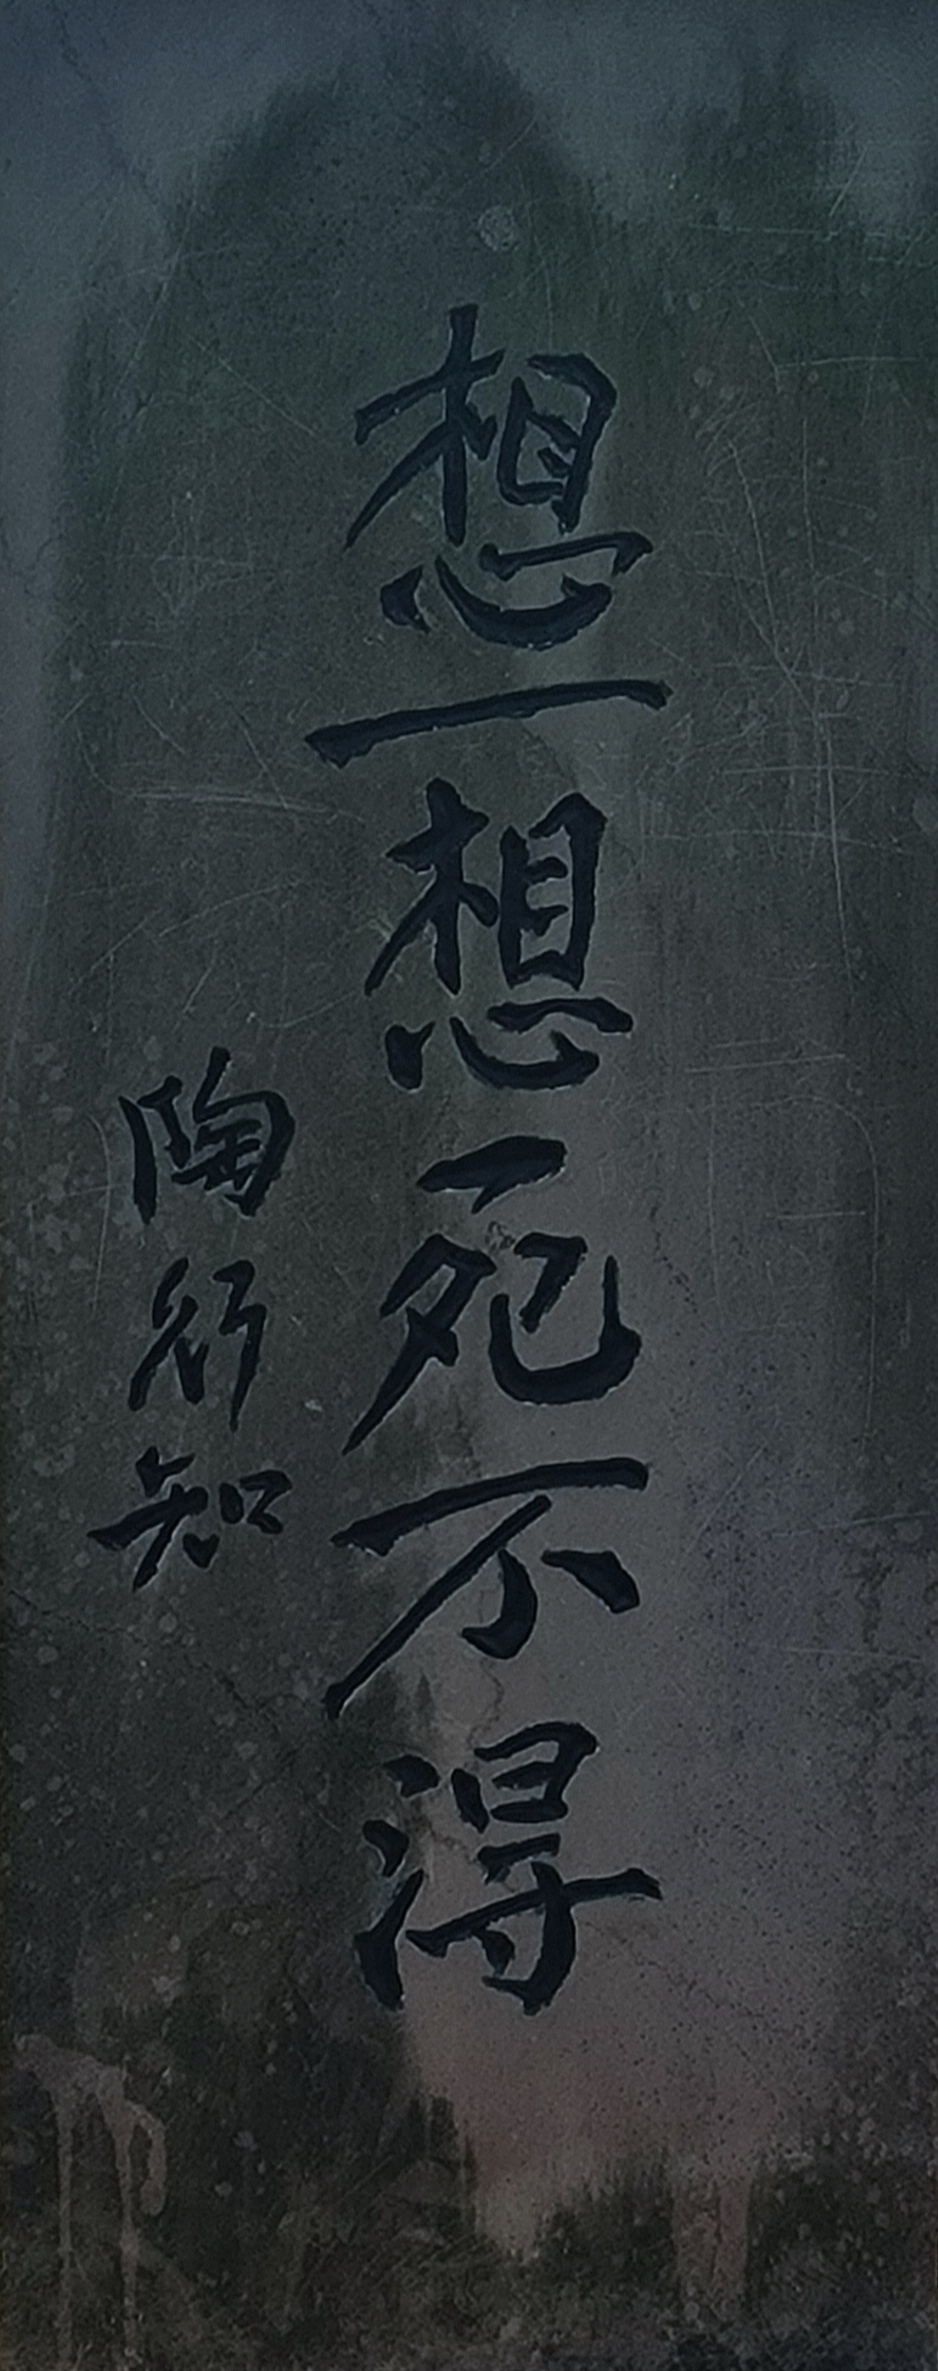 想一想死不得
陶行知